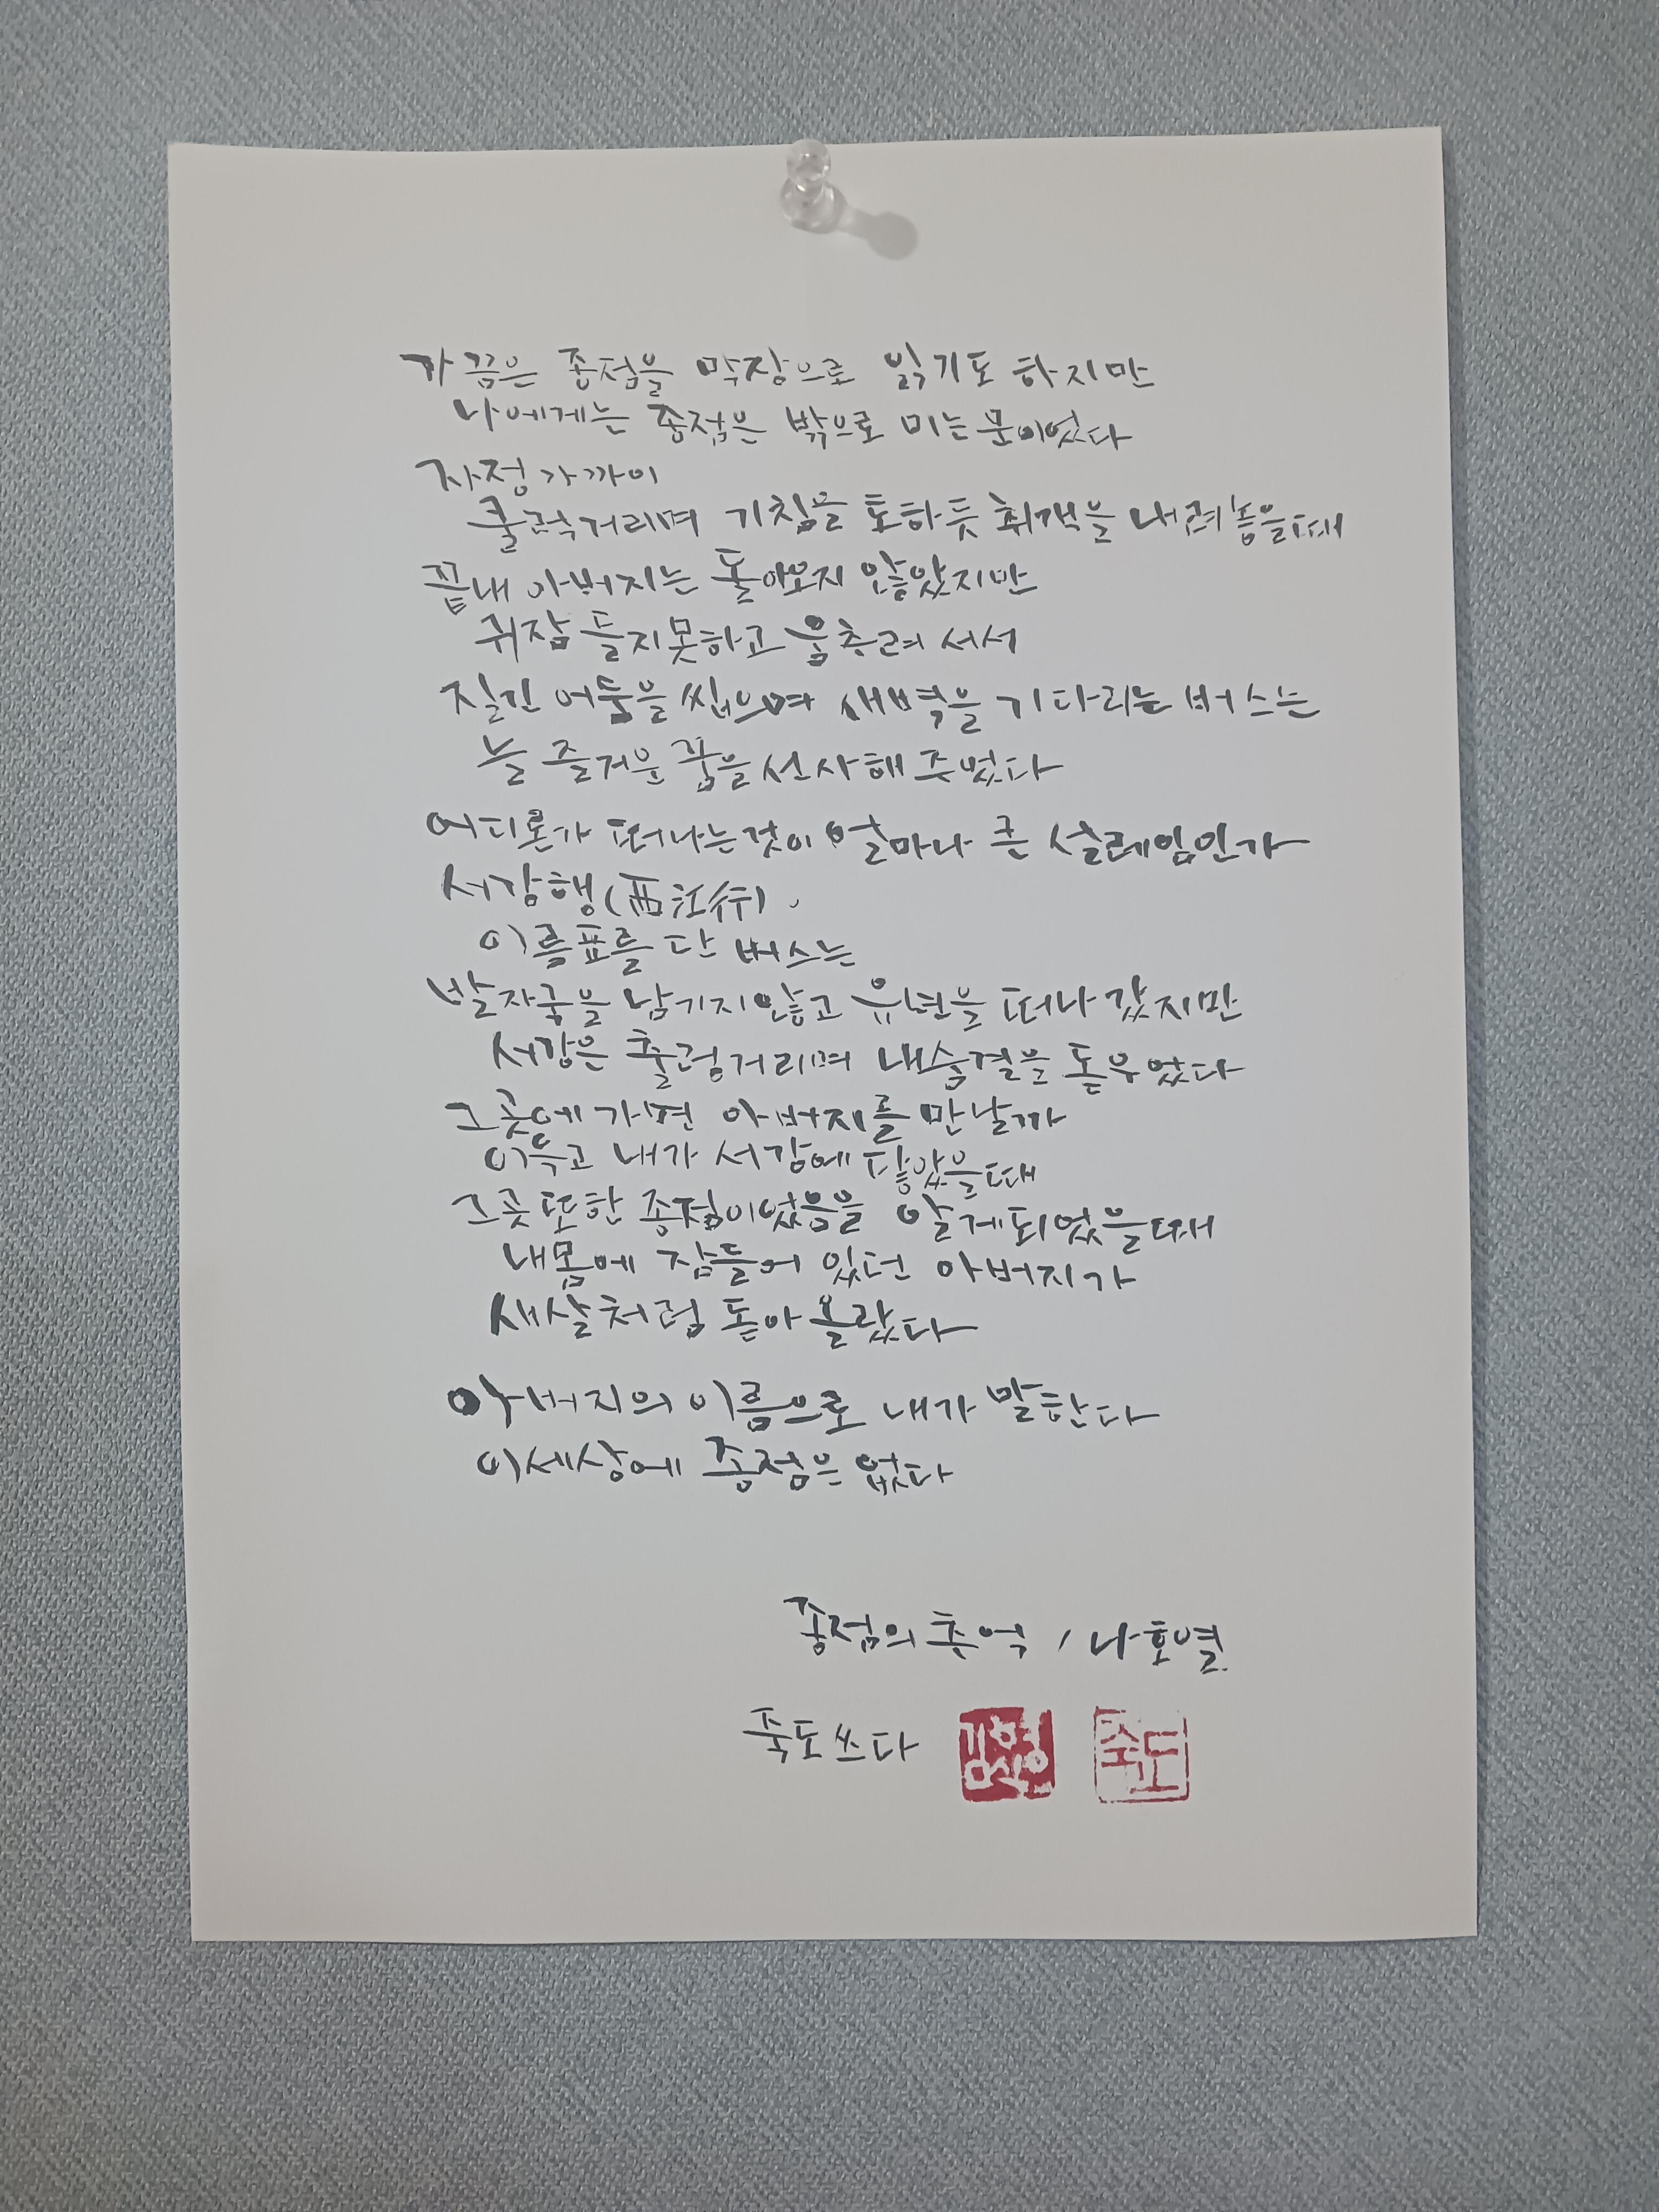 가끔은 종점을 막장으로 읽기도 하지만
나에게는 종점은 밖으로 미는 문이었다
자정 가까이
쿨럭거리며 기침을 토하듯 취객을 내려놓을때
끝내 아버지는 돌아오지 않았지만
귀잠 들지못하고 움츠려 서서
질긴 어둠을 씹으며 새벽을 기다리는 버스는
늘 즐거운 꿈을 선사해 주었다
어디론가 떠나는것이 얼마나 큰 설레임인가
서강행(西江行).
이름표를 단 버스는
발자국을 남기지않고 유년을 떠나 갔지만
서강은 출렁거리며 내숨결을 돋우었다
그곳에 가면 아버지를 만날까
이윽고 내가 서강에 닿았을때
그곳 또한 종점이었음을 알게되었을때
내몸에 잠들어 있던 아버지가
새살처럼 돋아 올랐다
아버지의 이름으로 내가 말한다
이세상에 종점은 없다
종점의 추억 / 나호열
죽도 쓰다
죽도